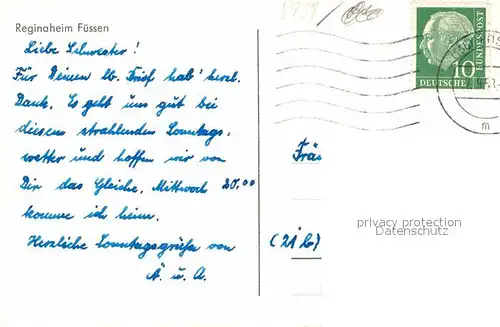 Reginaheim Füssen
Liebe Schwester!
Für Deinen lb. Brief hab' herzl.
Dank. Es geht uns gut bei
diesem strahlenden Sonntags-
wetter und hoffen wir von
Dir das Gleiche. Mittwoch 20.00
komme ich heim.
Herzliche Sonntagsgrüße von
A. u. A.
10
DEUTSCHE
BUNDESPOST
m
Fräu
(21b)
privacy protection
Datenschutz